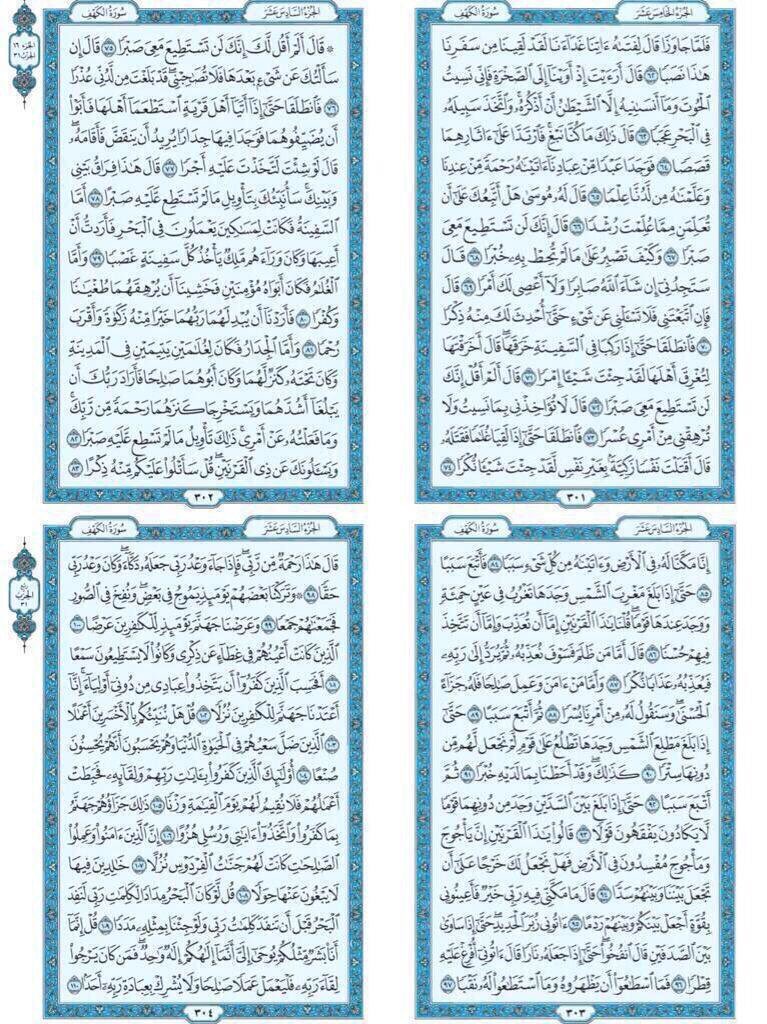 الجُزْءُ الخَامِسَ عَشَرَ سُورَةُ الكَهْفِ
فَلَمَّا جَاوَزَا قَالَ لِفَتَىٰهُ ءَاتِنَا غَدَآءَنَا لَقَدْ لَقِينَا مِن سَفَرِنَا
هَٰذَا نَصَبًا ٦٢ قَالَ أَرَءَيْتَ إِذْ أَوَيْنَآ إِلَى ٱلصَّخْرَةِ فَإِنِّي نَسِيتُ
ٱلْحُوتَ وَمَآ أَنسَىٰنِيهُ إِلَّا ٱلشَّيْطَٰنُ أَنْ أَذْكُرَهُۥ وَٱتَّخَذَ سَبِيلَهُۥ
فِي ٱلْبَحْرِ عَجَبًا ٦٣ قَالَ ذَٰلِكَ مَا كُنَّا نَبْغِ فَٱرْتَدَّا عَلَىٰٓ ءَاثَارِهِمَا
قَصَصًا ٦٤ فَوَجَدَا عَبْدًا مِّنْ عِبَادِنَآ ءَاتَيْنَٰهُ رَحْمَةً مِّنْ عِندِنَا
وَعَلَّمْنَٰهُ مِن لَّدُنَّا عِلْمًا ٦٥ قَالَ لَهُۥ مُوسَىٰ هَلْ أَتَّبِعُكَ عَلَىٰٓ أَن
تُعَلِّمَنِ مِمَّا عُلِّمْتَ رُشْدًا ٦٦ قَالَ إِنَّكَ لَن تَسْتَطِيعَ مَعِيَ
صَبْرًا ٦٧ وَكَيْفَ تَصْبِرُ عَلَىٰ مَا لَمْ تُحِطْ بِهِۦ خُبْرًا ٦٨ قَالَ
سَتَجِدُنِيٓ إِن شَآءَ ٱللَّهُ صَابِرًا وَلَآ أَعْصِي لَكَ أَمْرًا ٦٩ قَالَ
فَإِنِ ٱتَّبَعْتَنِي فَلَا تَسْـَٔلْنِي عَن شَيْءٍ حَتَّىٰٓ أُحْدِثَ لَكَ مِنْهُ ذِكْرًا
٧٠ فَٱنطَلَقَا حَتَّىٰٓ إِذَا رَكِبَا فِي ٱلسَّفِينَةِ خَرَقَهَا قَالَ أَخَرَقْتَهَا
لِتُغْرِقَ أَهْلَهَا لَقَدْ جِئْتَ شَيْـًٔا إِمْرًا ٧١ قَالَ أَلَمْ أَقُلْ إِنَّكَ
لَن تَسْتَطِيعَ مَعِيَ صَبْرًا ٧٢ قَالَ لَا تُؤَاخِذْنِي بِمَا نَسِيتُ وَلَا
تُرْهِقْنِي مِنْ أَمْرِي عُسْرًا ٧٣ فَٱنطَلَقَا حَتَّىٰٓ إِذَا لَقِيَا غُلَٰمًا فَقَتَلَهُۥ
قَالَ أَقَتَلْتَ نَفْسًا زَكِيَّةًۢ بِغَيْرِ نَفْسٍ لَّقَدْ جِئْتَ شَيْـًٔا نُّكْرًا ٧٤
٣٠١
الجُزْءُ السَّادِسَ عَشَرَ سُورَةُ الكَهْفِ
الجزء ١٦
الحزب ٣١
۞ قَالَ أَلَمْ أَقُل لَّكَ إِنَّكَ لَن تَسْتَطِيعَ مَعِيَ صَبْرًا ٧٥ قَالَ إِن
سَأَلْتُكَ عَن شَيْءٍۭ بَعْدَهَا فَلَا تُصَٰحِبْنِي قَدْ بَلَغْتَ مِن لَّدُنِّي عُذْرًا
٧٦ فَٱنطَلَقَا حَتَّىٰٓ إِذَآ أَتَيَآ أَهْلَ قَرْيَةٍ ٱسْتَطْعَمَآ أَهْلَهَا فَأَبَوْا۟
أَن يُضَيِّفُوهُمَا فَوَجَدَا فِيهَا جِدَارًا يُرِيدُ أَن يَنقَضَّ فَأَقَامَهُۥ
قَالَ لَوْ شِئْتَ لَتَّخَذْتَ عَلَيْهِ أَجْرًا ٧٧ قَالَ هَٰذَا فِرَاقُ بَيْنِي
وَبَيْنِكَ سَأُنَبِّئُكَ بِتَأْوِيلِ مَا لَمْ تَسْتَطِع عَّلَيْهِ صَبْرًا ٧٨ أَمَّا
ٱلسَّفِينَةُ فَكَانَتْ لِمَسَٰكِينَ يَعْمَلُونَ فِي ٱلْبَحْرِ فَأَرَدتُّ أَنْ
أَعِيبَهَا وَكَانَ وَرَآءَهُم مَّلِكٌ يَأْخُذُ كُلَّ سَفِينَةٍ غَصْبًا ٧٩ وَأَمَّا
ٱلْغُلَٰمُ فَكَانَ أَبَوَاهُ مُؤْمِنَيْنِ فَخَشِينَآ أَن يُرْهِقَهُمَا طُغْيَٰنًا
وَكُفْرًا ٨٠ فَأَرَدْنَآ أَن يُبْدِلَهُمَا رَبُّهُمَا خَيْرًا مِّنْهُ زَكَوٰةً وَأَقْرَبَ
رُحْمًا ٨١ وَأَمَّا ٱلْجِدَارُ فَكَانَ لِغُلَٰمَيْنِ يَتِيمَيْنِ فِي ٱلْمَدِينَةِ
وَكَانَ تَحْتَهُۥ كَنزٌ لَّهُمَا وَكَانَ أَبُوهُمَا صَٰلِحًا فَأَرَادَ رَبُّكَ أَن
يَبْلُغَآ أَشُدَّهُمَا وَيَسْتَخْرِجَا كَنزَهُمَا رَحْمَةً مِّن رَّبِّكَ
وَمَا فَعَلْتُهُۥ عَنْ أَمْرِي ذَٰلِكَ تَأْوِيلُ مَا لَمْ تَسْطِع عَّلَيْهِ صَبْرًا ٨٢
وَيَسْـَٔلُونَكَ عَن ذِي ٱلْقَرْنَيْنِ قُلْ سَأَتْلُوا۟ عَلَيْكُم مِّنْهُ ذِكْرًا ٨٣
٣٠٢
الجُزْءُ السَّادِسَ عَشَرَ سُورَةُ الكَهْفِ
إِنَّا مَكَّنَّا لَهُۥ فِي ٱلْأَرْضِ وَءَاتَيْنَٰهُ مِن كُلِّ شَيْءٍ سَبَبًا ٨٤ فَأَتْبَعَ سَبَبًا
٨٥ حَتَّىٰٓ إِذَا بَلَغَ مَغْرِبَ ٱلشَّمْسِ وَجَدَهَا تَغْرُبُ فِي عَيْنٍ حَمِئَةٍ
وَوَجَدَ عِندَهَا قَوْمًا قُلْنَا يَٰذَا ٱلْقَرْنَيْنِ إِمَّآ أَن تُعَذِّبَ وَإِمَّآ أَن تَتَّخِذَ
فِيهِمْ حُسْنًا ٨٦ قَالَ أَمَّا مَن ظَلَمَ فَسَوْفَ نُعَذِّبُهُۥ ثُمَّ يُرَدُّ إِلَىٰ رَبِّهِۦ
فَيُعَذِّبُهُۥ عَذَابًا نُّكْرًا ٨٧ وَأَمَّا مَنْ ءَامَنَ وَعَمِلَ صَٰلِحًا فَلَهُۥ جَزَآءً
ٱلْحُسْنَىٰ وَسَنَقُولُ لَهُۥ مِنْ أَمْرِنَا يُسْرًا ٨٨ ثُمَّ أَتْبَعَ سَبَبًا ٨٩ حَتَّىٰٓ
إِذَا بَلَغَ مَطْلِعَ ٱلشَّمْسِ وَجَدَهَا تَطْلُعُ عَلَىٰ قَوْمٍ لَّمْ نَجْعَل لَّهُم مِّن
دُونِهَا سِتْرًا ٩٠ كَذَٰلِكَ وَقَدْ أَحَطْنَا بِمَا لَدَيْهِ خُبْرًا ٩١ ثُمَّ
أَتْبَعَ سَبَبًا ٩٢ حَتَّىٰٓ إِذَا بَلَغَ بَيْنَ ٱلسَّدَّيْنِ وَجَدَ مِن دُونِهِمَا قَوْمًا
لَّا يَكَادُونَ يَفْقَهُونَ قَوْلًا ٩٣ قَالُوا۟ يَٰذَا ٱلْقَرْنَيْنِ إِنَّ يَأْجُوجَ
وَمَأْجُوجَ مُفْسِدُونَ فِي ٱلْأَرْضِ فَهَلْ نَجْعَلُ لَكَ خَرْجًا عَلَىٰٓ أَن
تَجْعَلَ بَيْنَنَا وَبَيْنَهُمْ سَدًّا ٩٤ قَالَ مَا مَكَّنِّي فِيهِ رَبِّي خَيْرٌ فَأَعِينُونِي
بِقُوَّةٍ أَجْعَلْ بَيْنَكُمْ وَبَيْنَهُمْ رَدْمًا ٩٥ ءَاتُونِي زُبَرَ ٱلْحَدِيدِ حَتَّىٰٓ إِذَا سَاوَىٰ
بَيْنَ ٱلصَّدَفَيْنِ قَالَ ٱنفُخُوا۟ حَتَّىٰٓ إِذَا جَعَلَهُۥ نَارًا قَالَ ءَاتُونِيٓ أُفْرِغْ عَلَيْهِ
قِطْرًا ٩٦ فَمَا ٱسْطَٰعُوٓا۟ أَن يَظْهَرُوهُ وَمَا ٱسْتَطَٰعُوا۟ لَهُۥ نَقْبًا ٩٧
٣٠٣
الجُزْءُ السَّادِسَ عَشَرَ سُورَةُ الكَهْفِ
ربع
الحزب
٣١
قَالَ هَٰذَا رَحْمَةٌ مِّن رَّبِّي فَإِذَا جَآءَ وَعْدُ رَبِّي جَعَلَهُۥ دَكَّآءَ وَكَانَ وَعْدُ رَبِّي
حَقًّا ٩٨ ۞ وَتَرَكْنَا بَعْضَهُمْ يَوْمَئِذٍ يَمُوجُ فِي بَعْضٍ وَنُفِخَ فِي ٱلصُّورِ
فَجَمَعْنَٰهُمْ جَمْعًا ٩٩ وَعَرَضْنَا جَهَنَّمَ يَوْمَئِذٍ لِّلْكَٰفِرِينَ عَرْضًا ١٠٠
ٱلَّذِينَ كَانَتْ أَعْيُنُهُمْ فِي غِطَآءٍ عَن ذِكْرِي وَكَانُوا۟ لَا يَسْتَطِيعُونَ سَمْعًا
١٠١ أَفَحَسِبَ ٱلَّذِينَ كَفَرُوٓا۟ أَن يَتَّخِذُوا۟ عِبَادِي مِن دُونِيٓ أَوْلِيَآءَ إِنَّآ
أَعْتَدْنَا جَهَنَّمَ لِلْكَٰفِرِينَ نُزُلًا ١٠٢ قُلْ هَلْ نُنَبِّئُكُم بِٱلْأَخْسَرِينَ أَعْمَٰلًا
١٠٣ ٱلَّذِينَ ضَلَّ سَعْيُهُمْ فِي ٱلْحَيَوٰةِ ٱلدُّنْيَا وَهُمْ يَحْسَبُونَ أَنَّهُمْ يُحْسِنُونَ
صُنْعًا ١٠٤ أُو۟لَٰٓئِكَ ٱلَّذِينَ كَفَرُوا۟ بِـَٔايَٰتِ رَبِّهِمْ وَلِقَآئِهِۦ فَحَبِطَتْ
أَعْمَٰلُهُمْ فَلَا نُقِيمُ لَهُمْ يَوْمَ ٱلْقِيَٰمَةِ وَزْنًا ١٠٥ ذَٰلِكَ جَزَآؤُهُمْ جَهَنَّمُ
بِمَا كَفَرُوا۟ وَٱتَّخَذُوٓا۟ ءَايَٰتِي وَرُسُلِي هُزُوًا ١٠٦ إِنَّ ٱلَّذِينَ ءَامَنُوا۟ وَعَمِلُوا۟
ٱلصَّٰلِحَٰتِ كَانَتْ لَهُمْ جَنَّٰتُ ٱلْفِرْدَوْسِ نُزُلًا ١٠٧ خَٰلِدِينَ فِيهَا
لَا يَبْغُونَ عَنْهَا حِوَلًا ١٠٨ قُل لَّوْ كَانَ ٱلْبَحْرُ مِدَادًا لِّكَلِمَٰتِ رَبِّي لَنَفِدَ
ٱلْبَحْرُ قَبْلَ أَن تَنفَدَ كَلِمَٰتُ رَبِّي وَلَوْ جِئْنَا بِمِثْلِهِۦ مَدَدًا ١٠٩ قُلْ إِنَّمَآ
أَنَا۠ بَشَرٌ مِّثْلُكُمْ يُوحَىٰٓ إِلَيَّ أَنَّمَآ إِلَٰهُكُمْ إِلَٰهٌ وَٰحِدٌ فَمَن كَانَ يَرْجُوا۟
لِقَآءَ رَبِّهِۦ فَلْيَعْمَلْ عَمَلًا صَٰلِحًا وَلَا يُشْرِكْ بِعِبَادَةِ رَبِّهِۦٓ أَحَدًۢا ١١٠
٣٠٤